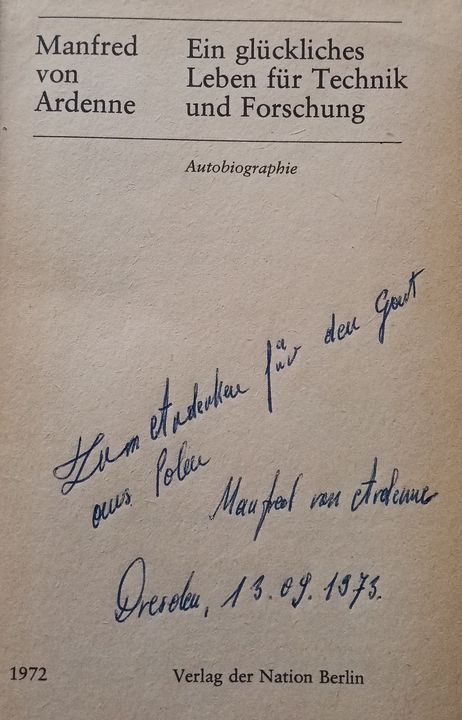 Manfred
von
Ardenne
Ein glückliches
Leben für Technik
und Forschung
Autobiographie
Zum Andenken für den Gast
aus Polen
Manfred von Ardenne
Dresden, 13.09.1973.
1972
Verlag der Nation Berlin